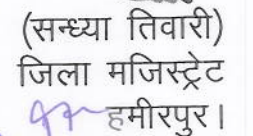 (सन्ध्या तिवारी)
जिला मजिस्ट्रेट
हमीरपुर।